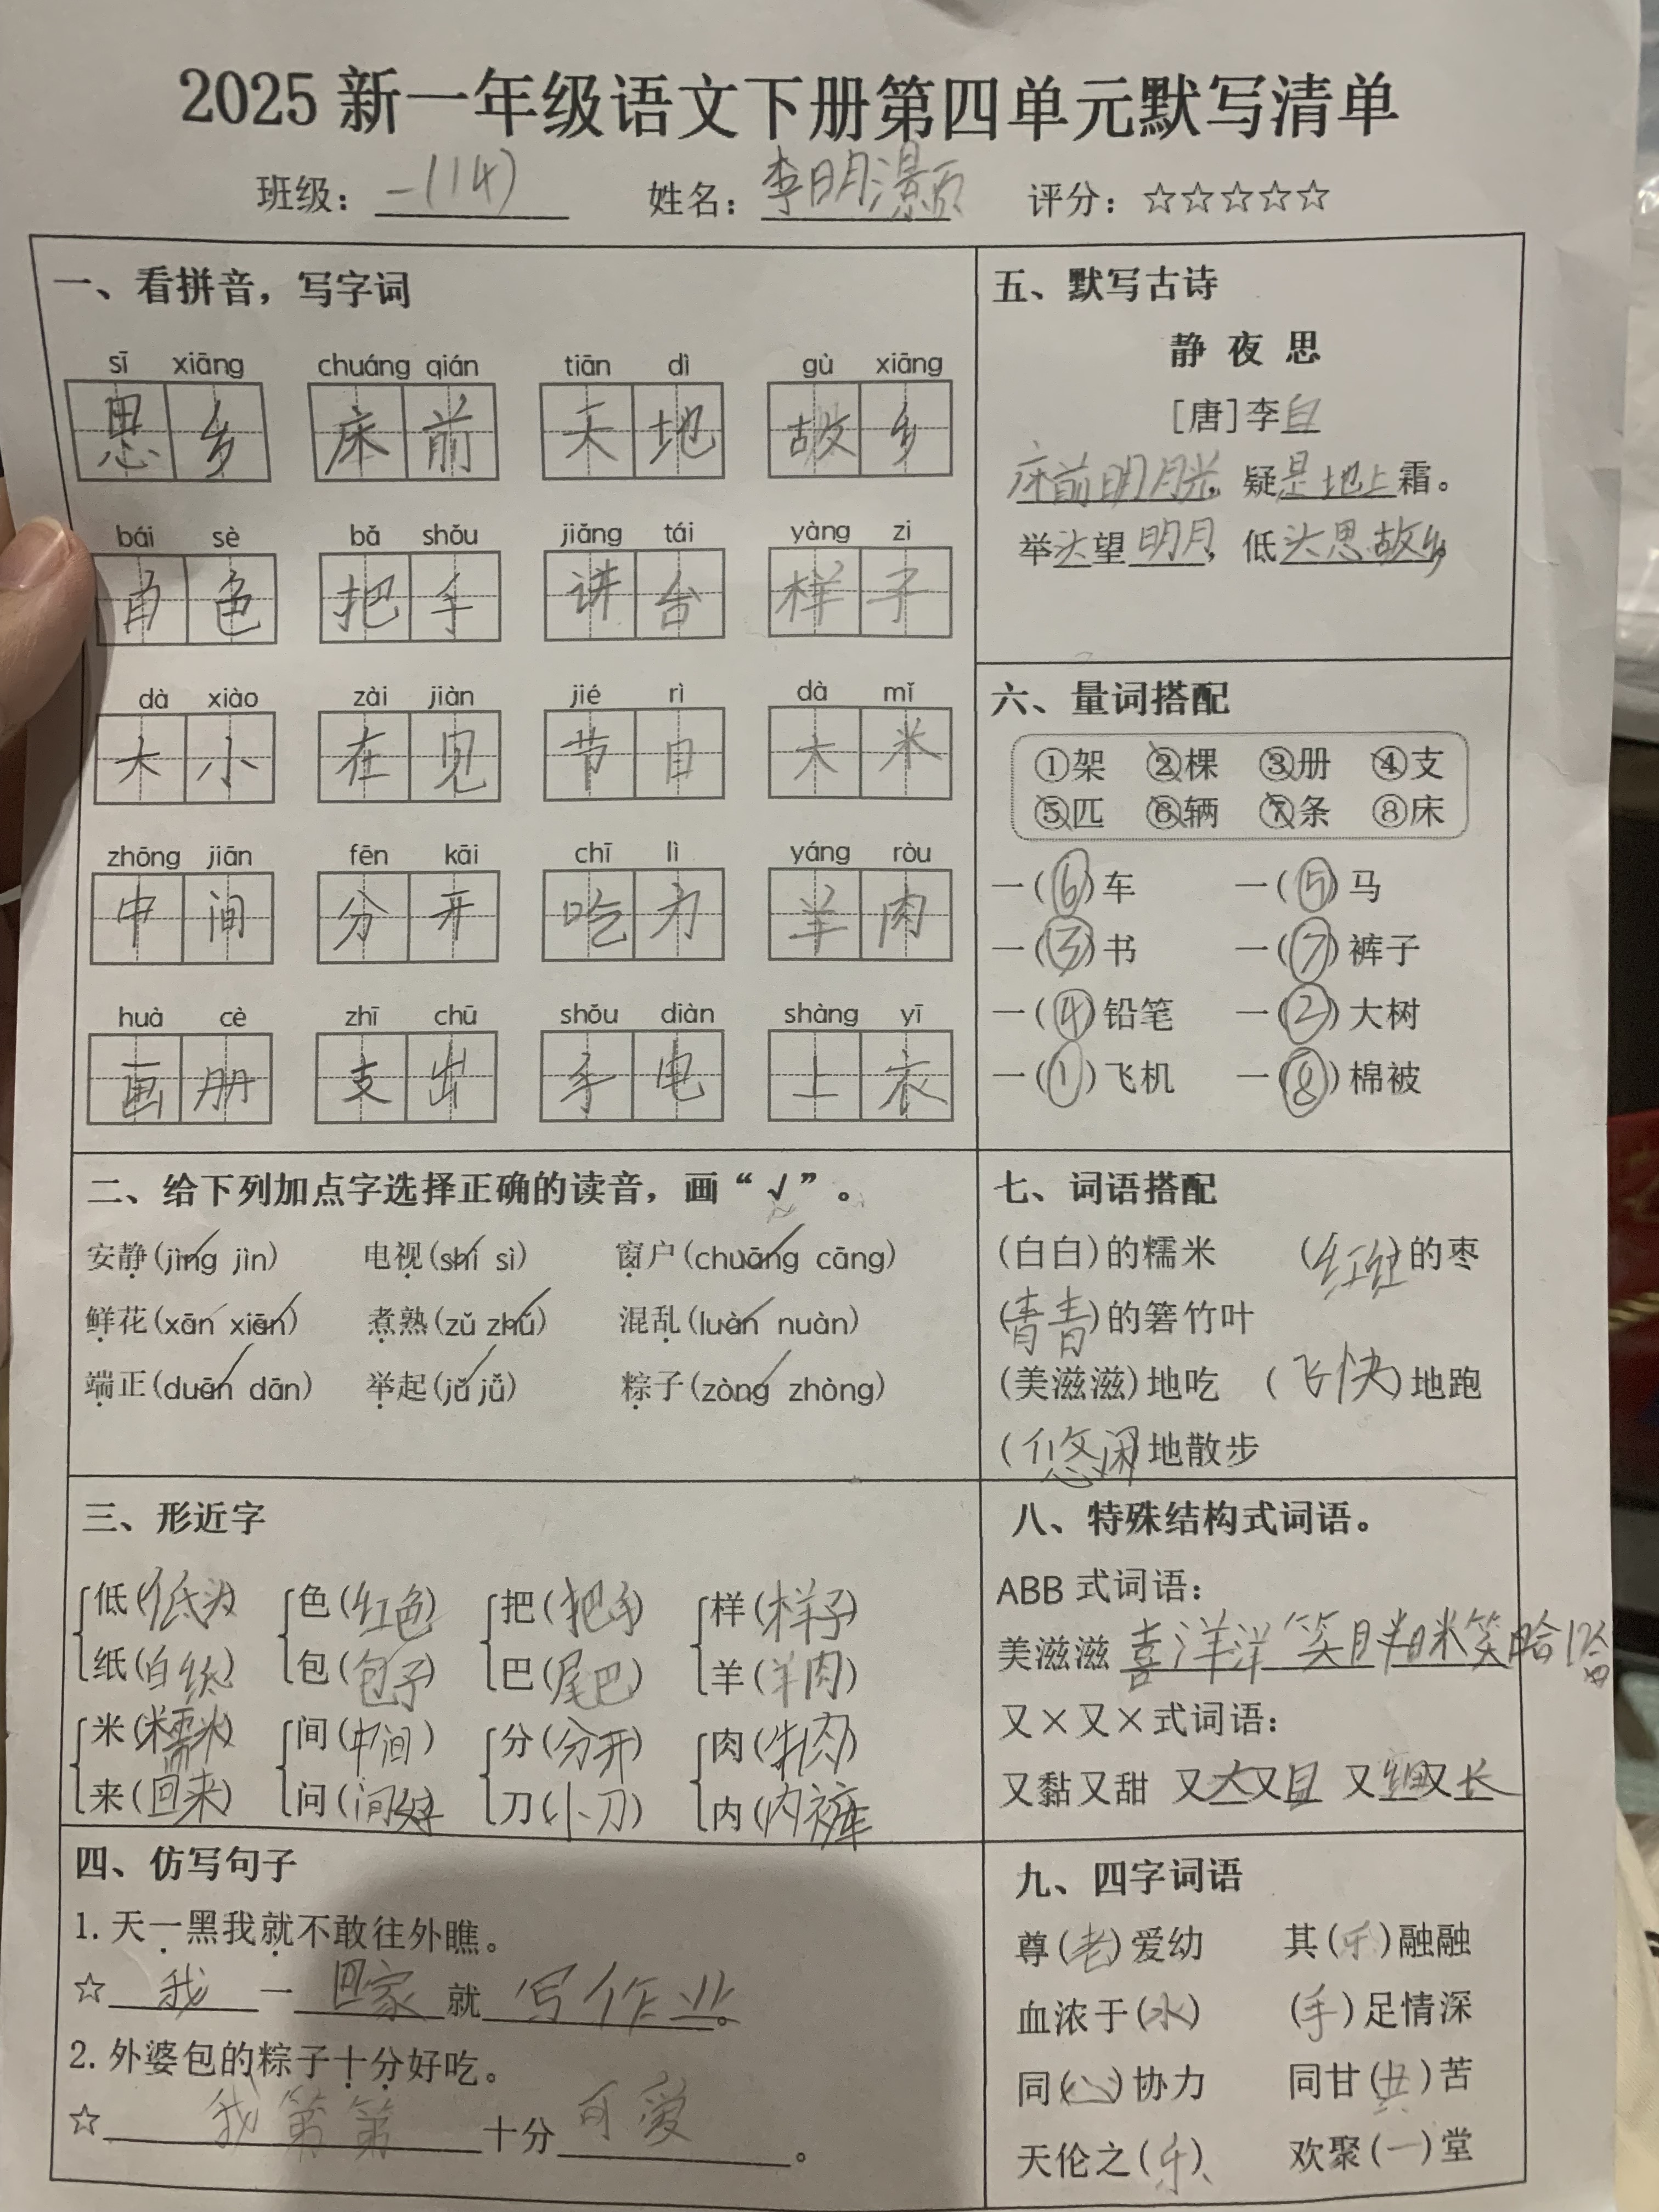 2025 新一年级语文下册第四单元默写清单
班级：一(14) 姓名：李明灏 评分：☆☆☆☆☆
一、看拼音，写字词
sī xiāng chuáng qián tiān dì gù xiāng
思乡 床前 天地 故乡
bái sè bǎ shǒu jiǎng tái yàng zi
白色 把手 讲台 样子
dà xiǎo zài jiàn jié rì dà mǐ
大小 在见 节日 大米
zhōng jiān fēn kāi chī lì yáng ròu
中间 分开 吃力 羊肉
huà cè zhī chū shǒu diàn shàng yī
画册 支出 手电 上衣
二、给下列加点字选择正确的读音，画“√”。
安静(jìng jìn) 电视(shì sì) 窗户(chuāng cāng)
鲜花(xān xiān) 煮熟(zǔ zhǔ) 混乱(luàn nuàn)
端正(duān dān) 举起(jǔ jǚ) 粽子(zòng zhòng)
三、形近字
低(低头) 色(红色) 把(把手) 样(样子)
纸(白纸) 包(包子) 巴(尾巴) 羊(羊肉)
米(糯米) 间(中间) 分(分开) 肉(牛肉)
来(回来) 问(间好) 刀(小刀) 内(内裤)
四、仿写句子
1. 天一黑我就不敢往外瞧。
☆我一回家就写作业。
2. 外婆包的粽子十分好吃。
☆我第第十分可爱。
五、默写古诗
静夜思
[唐]李白
床前明月光，疑是地上霜。
举头望明月，低头思故乡
六、量词搭配
①架 ②棵 ③册 ④支
⑤匹 ⑥辆 ⑦条 ⑧床
一(⑥)车 一(⑤)马
一(③)书 一(⑦)裤子
一(④)铅笔 一(②)大树
一(①)飞机 一(⑧)棉被
七、词语搭配
(白白)的糯米 (红红)的枣
(青青)的箬竹叶
(美滋滋)地吃 (飞快)地跑
(悠闲)地散步
八、特殊结构式词语。
ABB 式词语：
美滋滋 喜洋洋 笑眯眯 笑哈哈
又×又×式词语：
又黏又甜 又大又且 又细又长
九、四字词语
尊(老)爱幼 其(乐)融融
血浓于(水) (手)足情深
同(心)协力 同甘(共)苦
天伦之(乐) 欢聚(一)堂